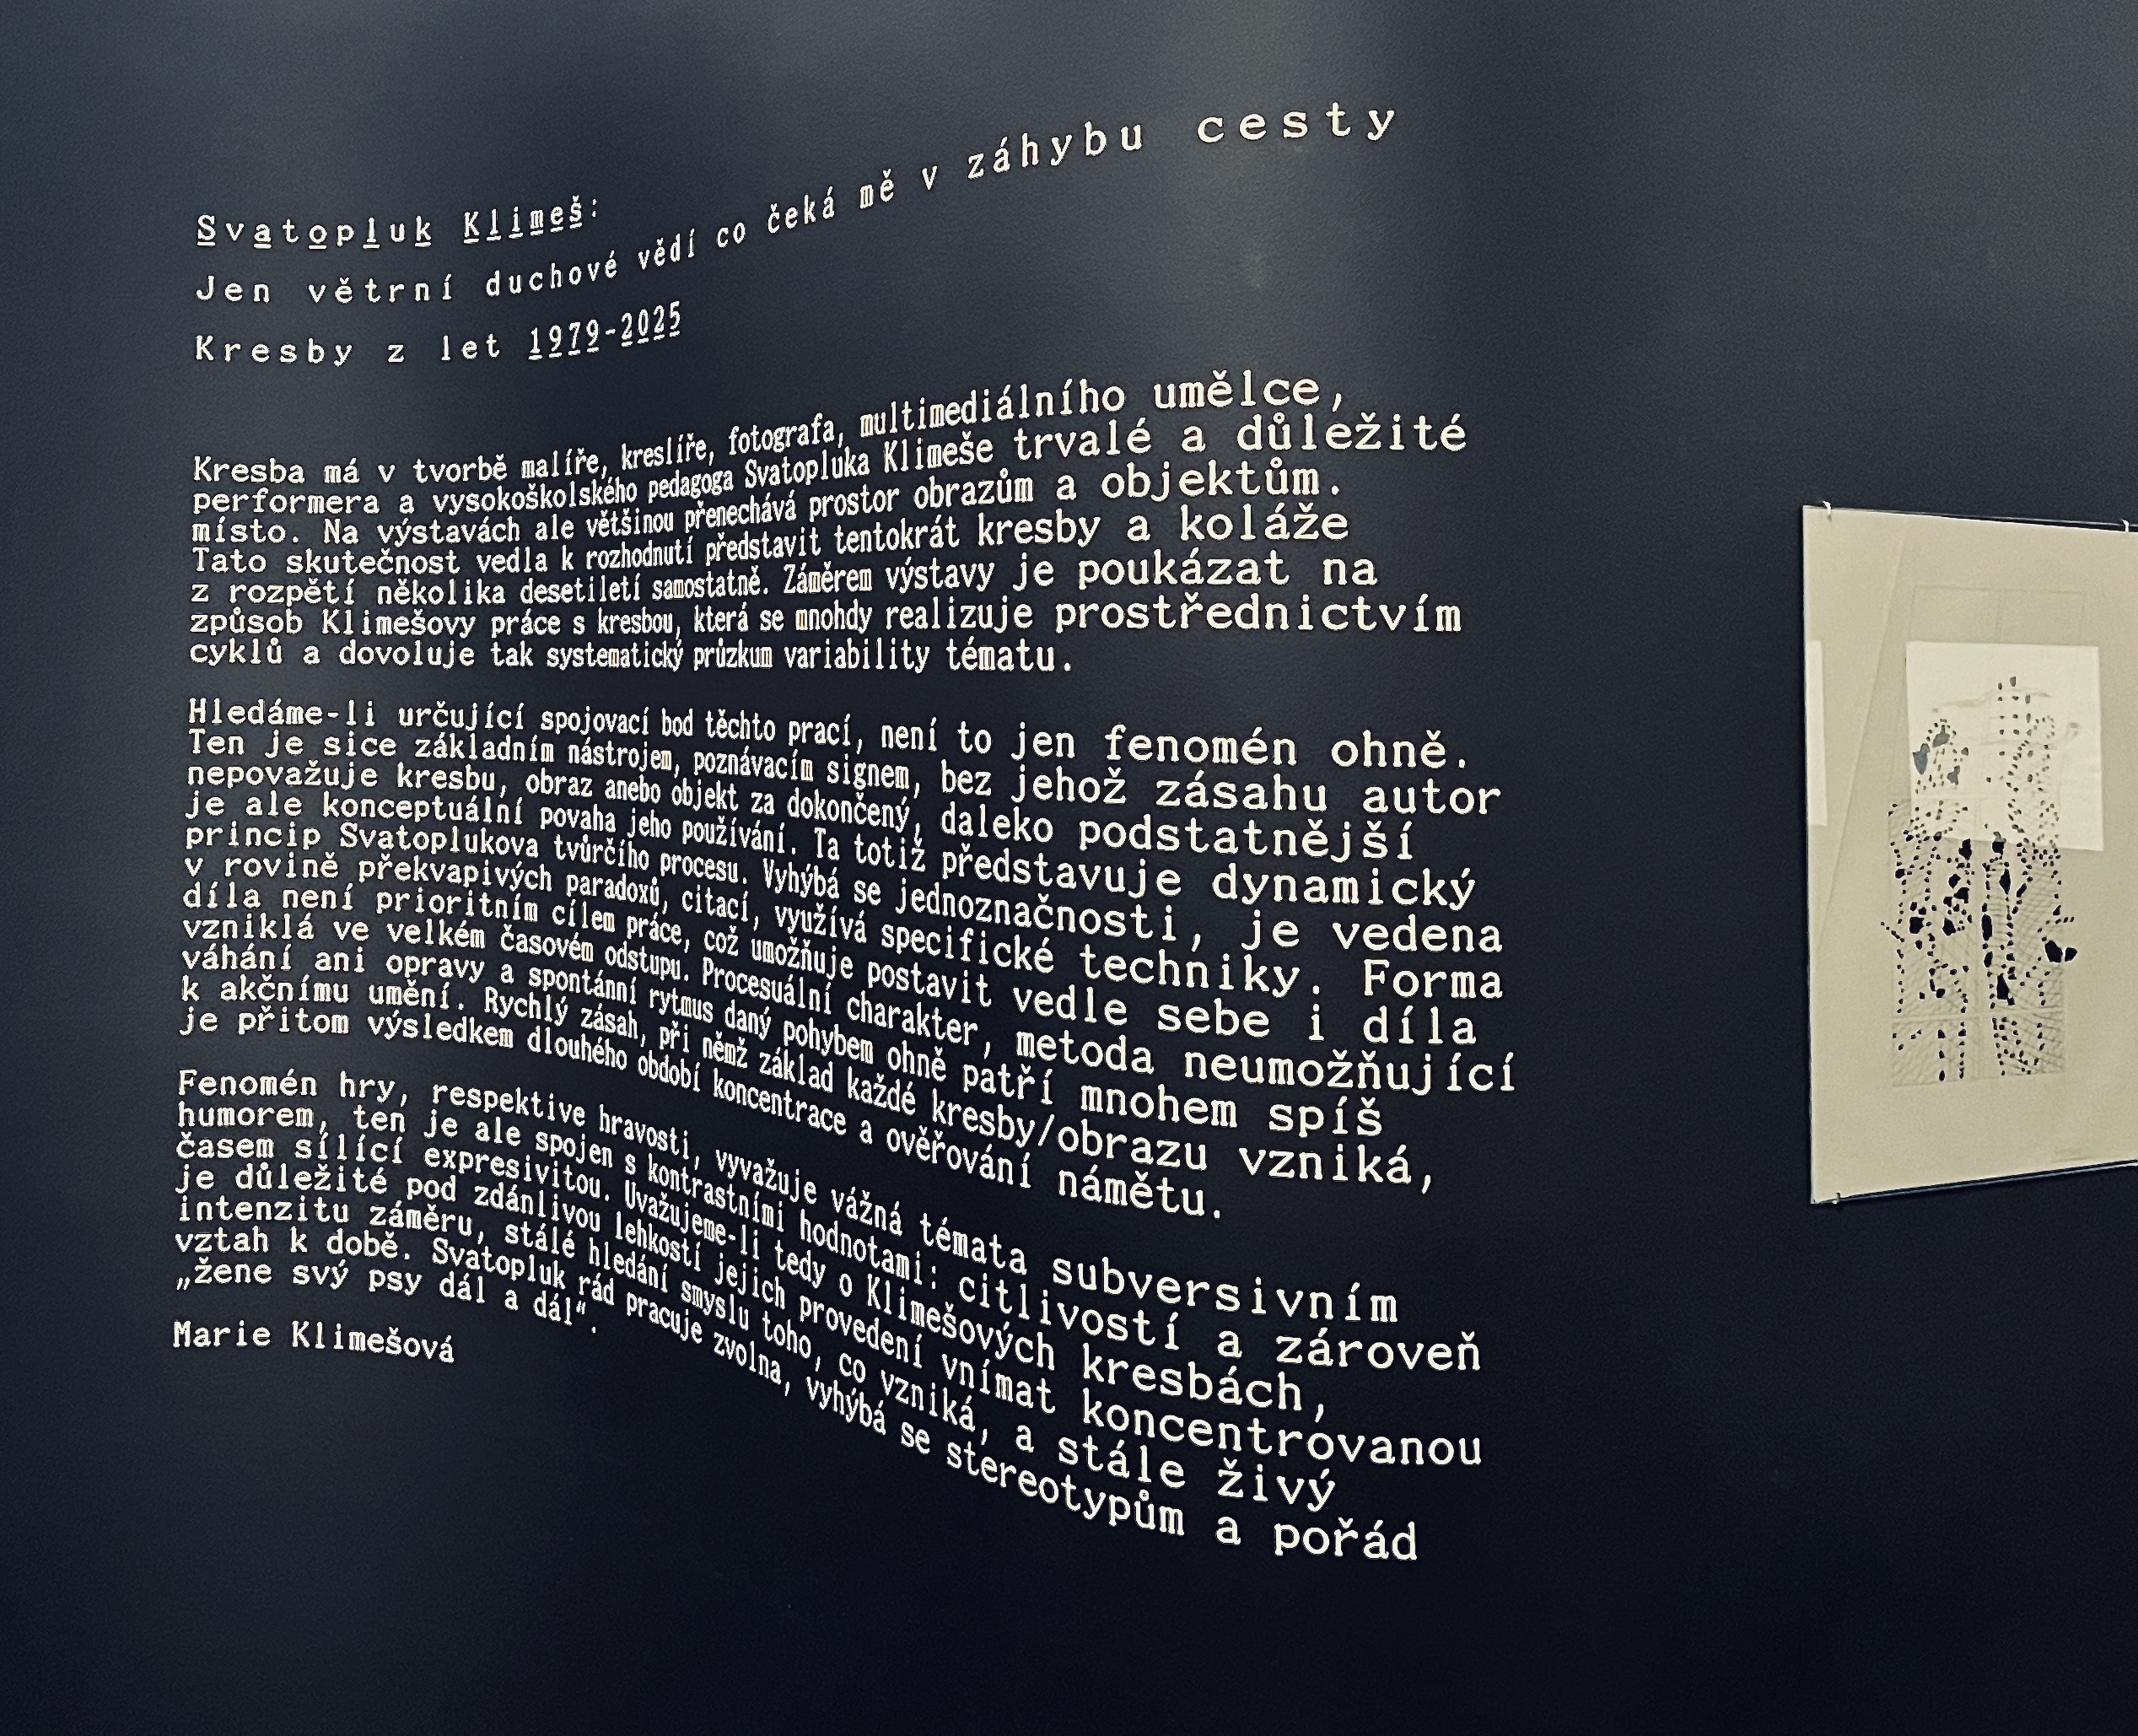 Svatopluk Klimeš:
Jen větrní duchové vědí co čeká mě v záhybu cesty
Kresby z let 1979-2025
Kresba má v tvorbě malíře, kreslíře, fotografa, multimediálního umělce,
performera a vysokoškolského pedagoga Svatopluka Klimeše trvalé a důležité
místo. Na výstavách ale většinou přenechává prostor obrazům a objektům.
Tato skutečnost vedla k rozhodnutí představit tentokrát kresby a koláže
z rozpětí několika desetiletí samostatně. Záměrem výstavy je poukázat na
způsob Klimešovy práce s kresbou, která se mnohdy realizuje prostřednictvím
cyklů a dovoluje tak systematický průzkum variability tématu.
Hledáme-li určující spojovací bod těchto prací, není to jen fenomén ohně.
Ten je sice základním nástrojem, poznávacím signem, bez jehož zásahu autor
nepovažuje kresbu, obraz anebo objekt za dokončený, daleko podstatnější
je ale konceptuální povaha jeho používání. Ta totiž představuje dynamický
princip Svatoplukova tvůrčího procesu. Vyhýbá se jednoznačnosti, je vedena
v rovině překvapivých paradoxů, citací, využívá specifické techniky. Forma
díla není prioritním cílem práce, což umožňuje postavit vedle sebe i díla
vzniklá ve velkém časovém odstupu. Procesuální charakter, metoda neumožňující
váhání ani opravy a spontánní rytmus daný pohybem ohně patří mnohem spíš
k akčnímu umění. Rychlý zásah, při němž základ každé kresby/obrazu vzniká,
je přitom výsledkem dlouhého období koncentrace a ověřování námětu.
Fenomén hry, respektive hravosti, vyvažuje vážná témata subversivním
humorem, ten je ale spojen s kontrastními hodnotami: citlivostí a zároveň
časem sílící expresivitou. Uvažujeme-li tedy o Klimešových kresbách,
je důležité pod zdánlivou lehkostí jejich provedení vnímat koncentrovanou
intenzitu záměru, stálé hledání smyslu toho, co vzniká, a stále živý
vztah k době. Svatopluk rád pracuje zvolna, vyhýbá se stereotypům a pořád
„žene svý psy dál a dál“.
Marie Klimešová